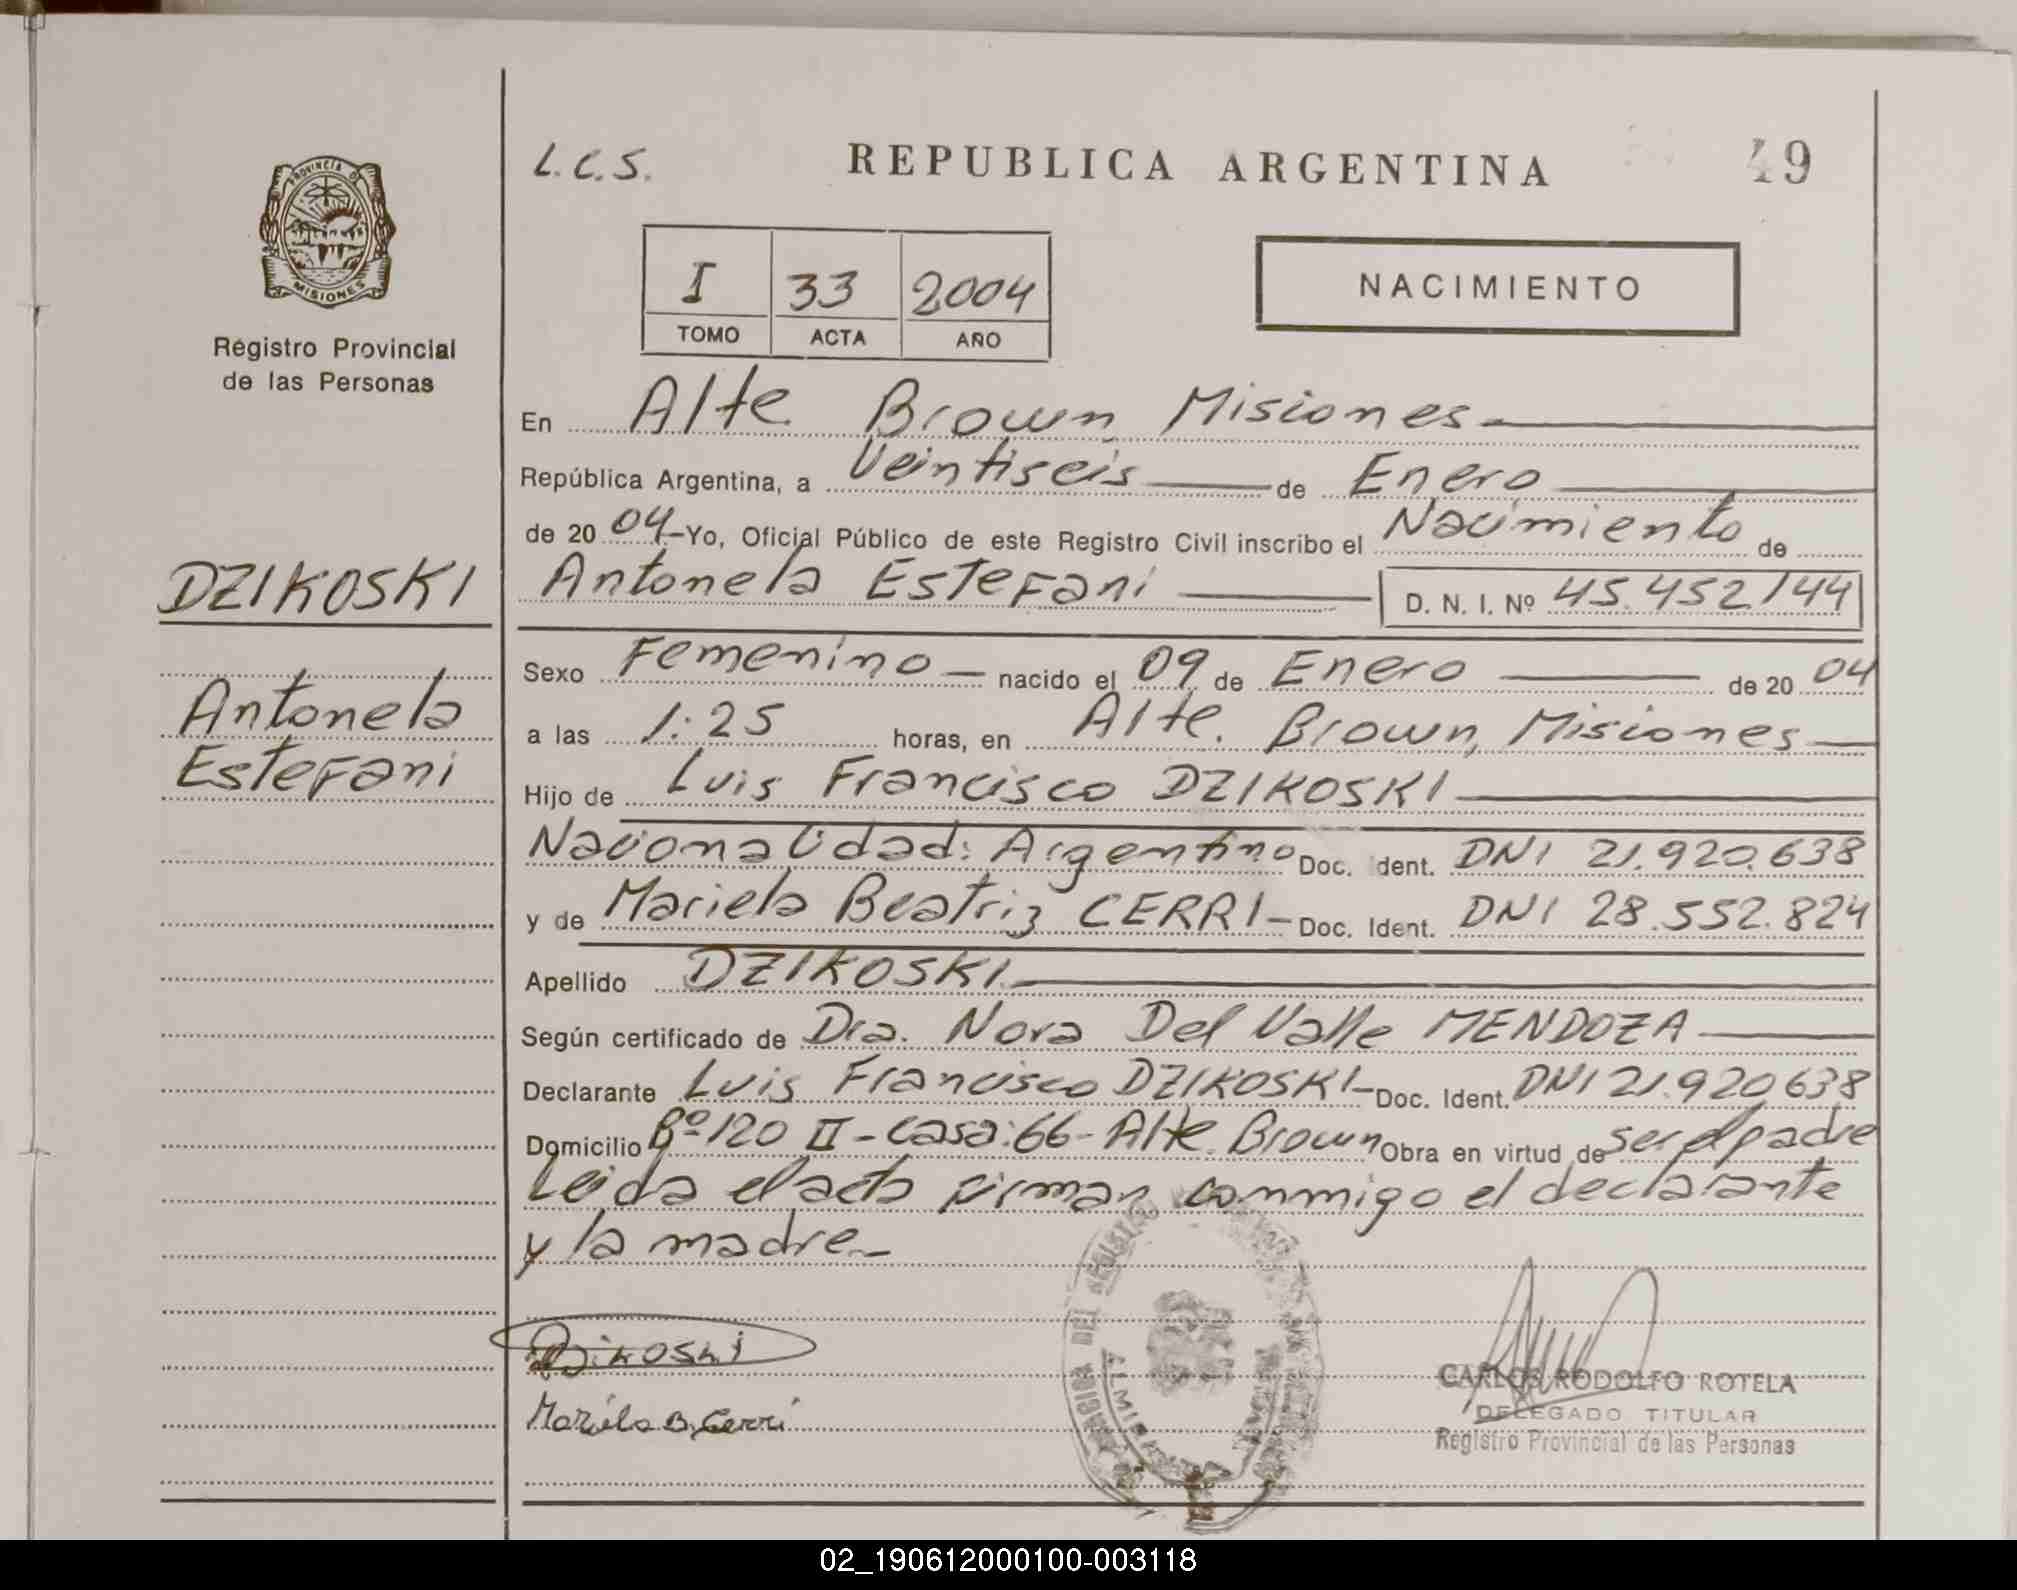 PROVINCIA DE
MISIONES
Registro Provincial
de las Personas
DZIKOSKI
Antonela
Estefani
L.C.S.
REPUBLICA ARGENTINA
49
I 33 2004
TOMO ACTA AÑO
NACIMIENTO
En Alte. Brown, Misiones
República Argentina, a Veintiseis de Enero
de 20 04 Yo, Oficial Público de este Registro Civil inscribo el Nacimiento de
Antonela Estefani D. N. I. Nº 45.452144
Sexo Femenino nacido el 09 de Enero de 20 04
a las 1:25 horas, en Alte. Brown, Misiones
Hijo de Luis Francisco DZIKOSKI
Nacionalidad: Argentino Doc. Ident. DNI 21.920.638
y de Mariela Beatriz CERRI Doc. Ident. DNI 28.552.824
Apellido DZIKOSKI
Según certificado de Dra. Nora Del Valle MENDOZA
Declarante Luis Francisco DZIKOSKI Doc. Ident. DNI 21.920638
Domicilio Bº 120 II - Casa: 66 - Alte. Brown Obra en virtud de ser el padre
Leida el acta firman conmigo el declarante
y la madre
Dzikoski
Mariela B. Cerri
CARLOS RODOLFO ROTELA
DELEGADO TITULAR
Registro Provincial de las Personas
02_190612000100-003118